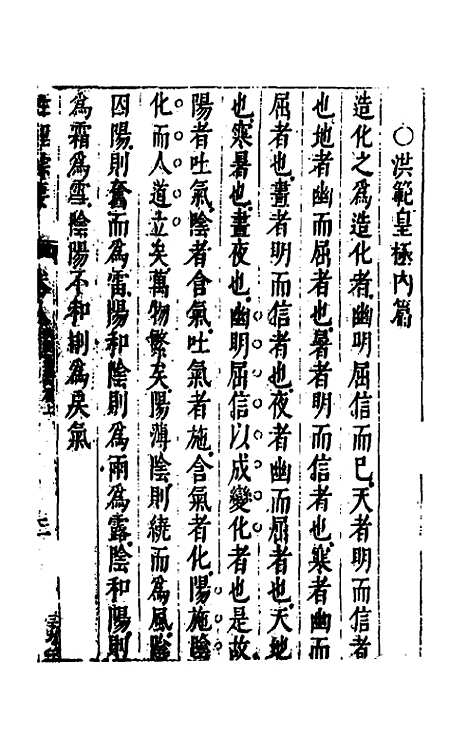 ○洪範皇極內篇
造化之為造化者幽明屈信而已天者明而信者
也地者幽而屈者也暑者明而信者也寒者幽而
屈者也晝者明而信者也夜者幽而屈者也天地
也寒暑也晝夜也幽明屈信以成變化者也是故
陽者吐氣陰者含氣吐氣者施含氣者化陽施陰
化而人道立矣萬物繁矣陽薄陰則繞而為風陰
囚陽則奮而為雷陽和陰則為雨為露陰和陽則
為霜為雪陰陽不和則為戾氣